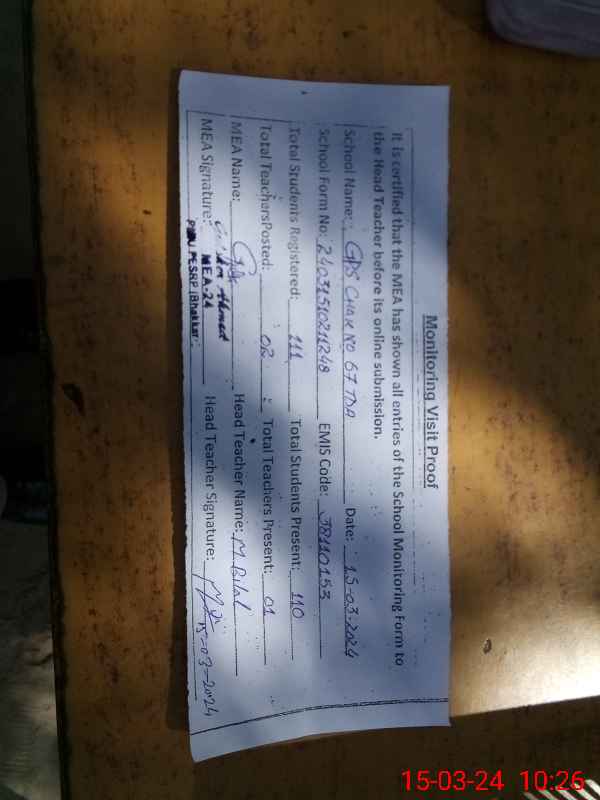 Monitoring Visit Proof
It is certified that the MEA has shown all entries of the School Monitoring Form to
the Head Teacher before its online submission.
School Name: GPS CHAK NO 67 TDA Date: 15-03-2024
School Form No: 24031510211248 EMIS Code: 38110153
Total Students Registered: 111 Total Students Present: 110
Total TeachersPosted: 02 Total Teachers Present: 01
MEA Name: Head Teacher Name: M. Bilal
MEA Signature: Head Teacher Signature: 15-03-2024
Ahmad
MEA-24
PMIU PESRP (Bhakkar)
15-03-24 10:26